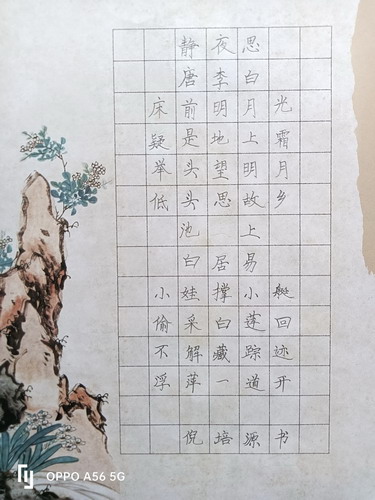 静夜思
唐李白
床前明月光
疑是地上霜
举头望明月
低头思故乡
池上
白居易
小娃撑小艇
偷采白莲回
不解藏踪迹
浮萍一道开
倪培源书
OPPO A56 5G